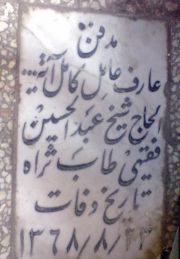 مدفن
عارف عامل کامل آیة...
الحاج شیخ عبدالحسین
فقیهی طاب ثراه
تاریخ وفات
۱۳۶۸/۸/۲۳